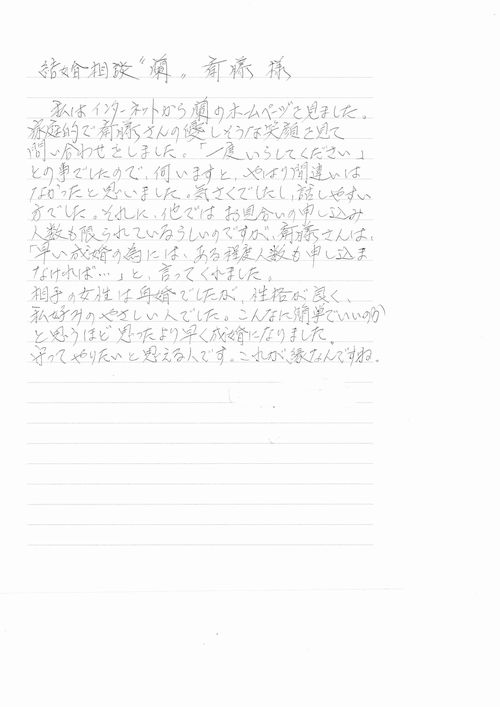 結婚相談"蘭" 斉藤 様
私はインターネットから蘭のホームページを見ました。
家庭的で斉藤さんの優しそうな笑顔を見て
問い合わせをしました。「一度いらしてください」
との事でしたので、伺いますと、やはり間違いは
なかったと思いました。気さくでしたし、話しやすい
方でした。それに、他ではお見合いの申し込み
人数も限られているらしいのですが、斉藤さんは、
「早い成婚の為には、ある程度人数も申し込ま
なければ…」と、言ってくれました。
相手の女性は再婚でしたが、性格が良く、
私好みのやさしい人でした。こんなに簡単でいいのか
と思うほど思ったより早く成婚になりました。
守ってやりたいと思える人です。これが、縁なんですね。